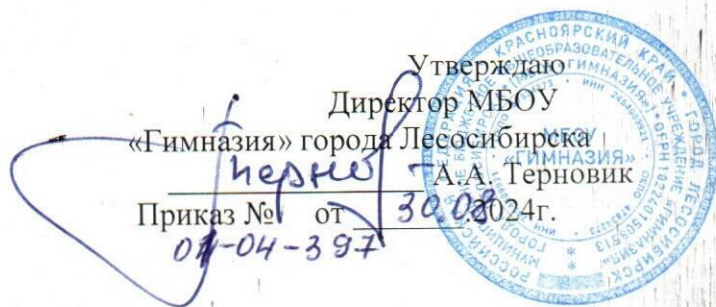 Утверждаю
Директор МБОУ
«Гимназия» города Лесосибирска
А.А. Терновик
Приказ № от 30.08.2024г.
01-04-397
КРАСНОЯРСКИЙ КРАЙ * ГОРОД ЛЕСОСИБИРСК
МБОУ
«ГИМНАЗИЯ»